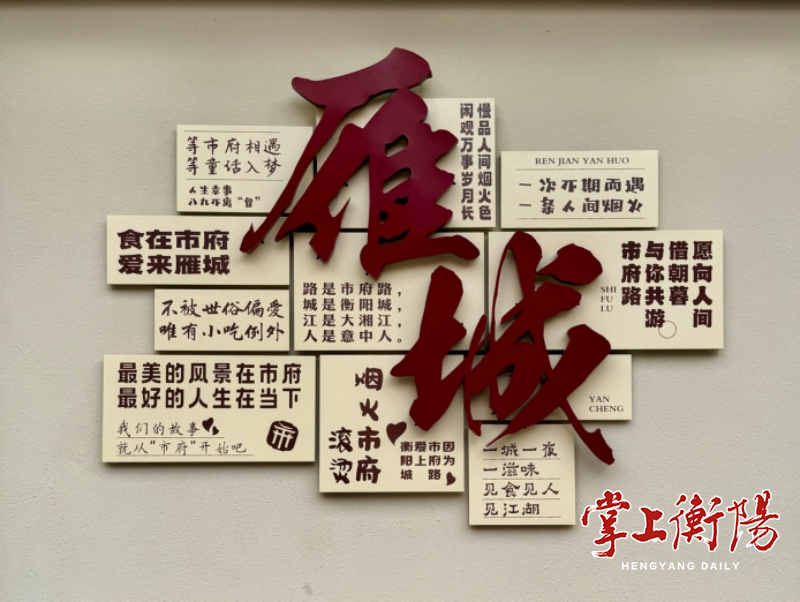 雁城
等市府相遇
等童话入梦
人生幸事
八九不离“食”
慢品人间烟火色
闲观万事岁月长
REN JIAN YAN HUO
一次不期而遇
一条人间烟火
食在市府
爱来雁城
路是市府路，
城是衡阳城，
江是大湘江，
人是意中人。
愿向人间
借朝暮
与你共游
市府路
SHI
FU
LU
不被世俗偏爱
唯有小吃例外
最美的风景在市府
最好的人生在当下
我们的故事
就从“市府”开始吧
烟火市府
滚烫
因为
市府路
爱上
衡阳城
YAN
CHENG
一城一夜
一滋味
见食见人
见江湖
掌上衡陽
HENGYANG DAILY